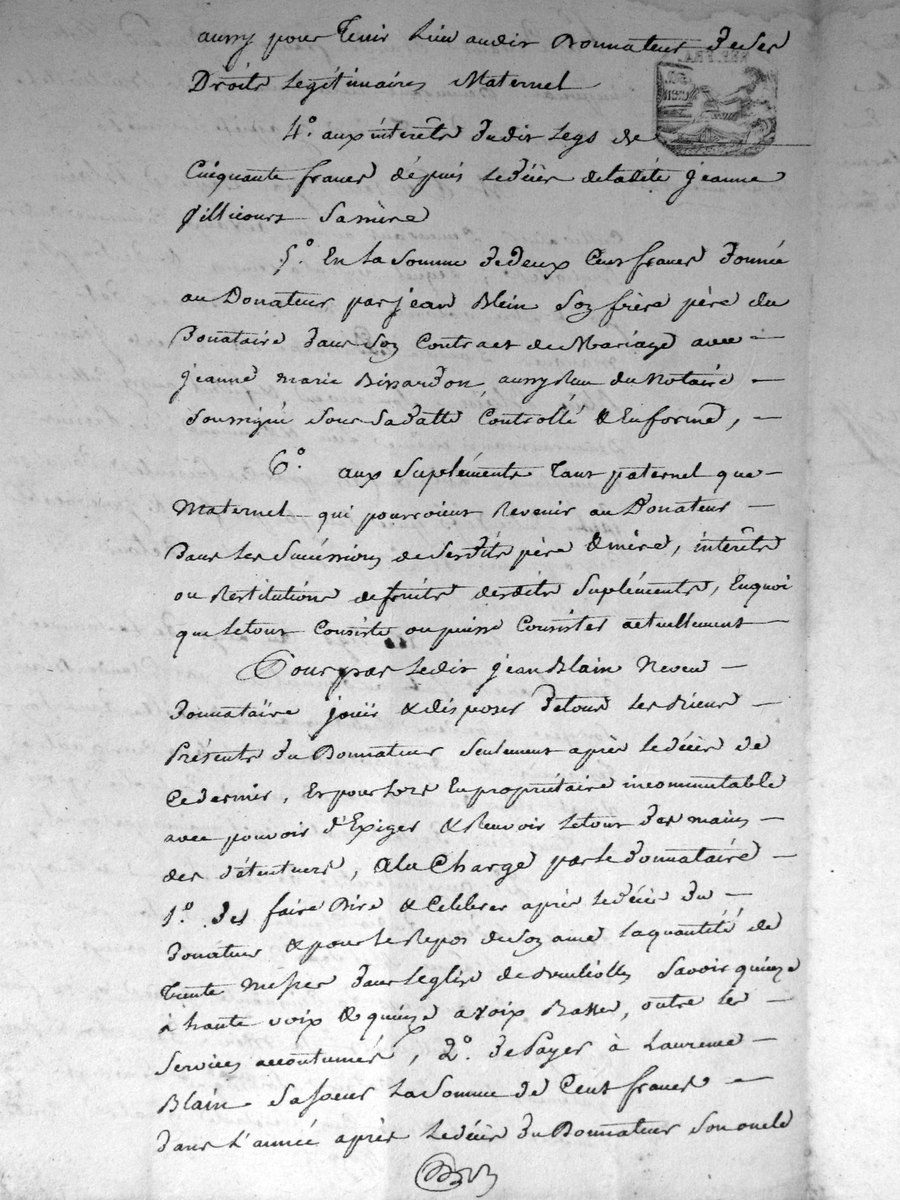 aussy pour tenir Lieu audit Donnateur de ses
Droits Legitimaires Maternel
REP. FRA.
4°. aux interêts dudit Legs de
Cinquante francs dépuis Le décès de ladite jeanne
sa mère
5°. En La somme de deux Cent francs donnée
au Donateur par jean Blein Soy frère père du
Donataire dans Soy Contract de Mariage avec
jeanne marie Bissardon aussy Reçu du Notaire
soussigné sous sa datte Controllé & En forme,
6°. aux Suplements tant paternel que
Maternel qui pourroient Revenir au Donateur
Dans Les Sucéssions de Sesdits père & mère, intérêts
ou Restitutions de fruits desdits Supléments, En quoi
que Letout Consiste ou puisse Consister actuellement
Pour par Ledit jean Blain Neveu
Donnataire jouir & disposer detous Les Biens
Présents du Donnateur seulement après Le décès de
Ce dernier, Et pour Lors En propriétaire incommutable
avec pouvoir d'Exiger & Recevoir Letout des mains
des détenteurs, A la Charge par Le Donnataire
1°. de faire Dire & Celebrer après Le décès du
Donateur & pour Le Repos de Soy ame La quantité de
trente Messes dans L'eglise de Savoir quinze
à haute voix & quinze a voix Basse, outre Les
Services accoutumés, 2°. de Payer à Laurence
Blain Sa Soeur La Somme de Cent francs
dans L'année après Le décès du Donnateur Son oncle